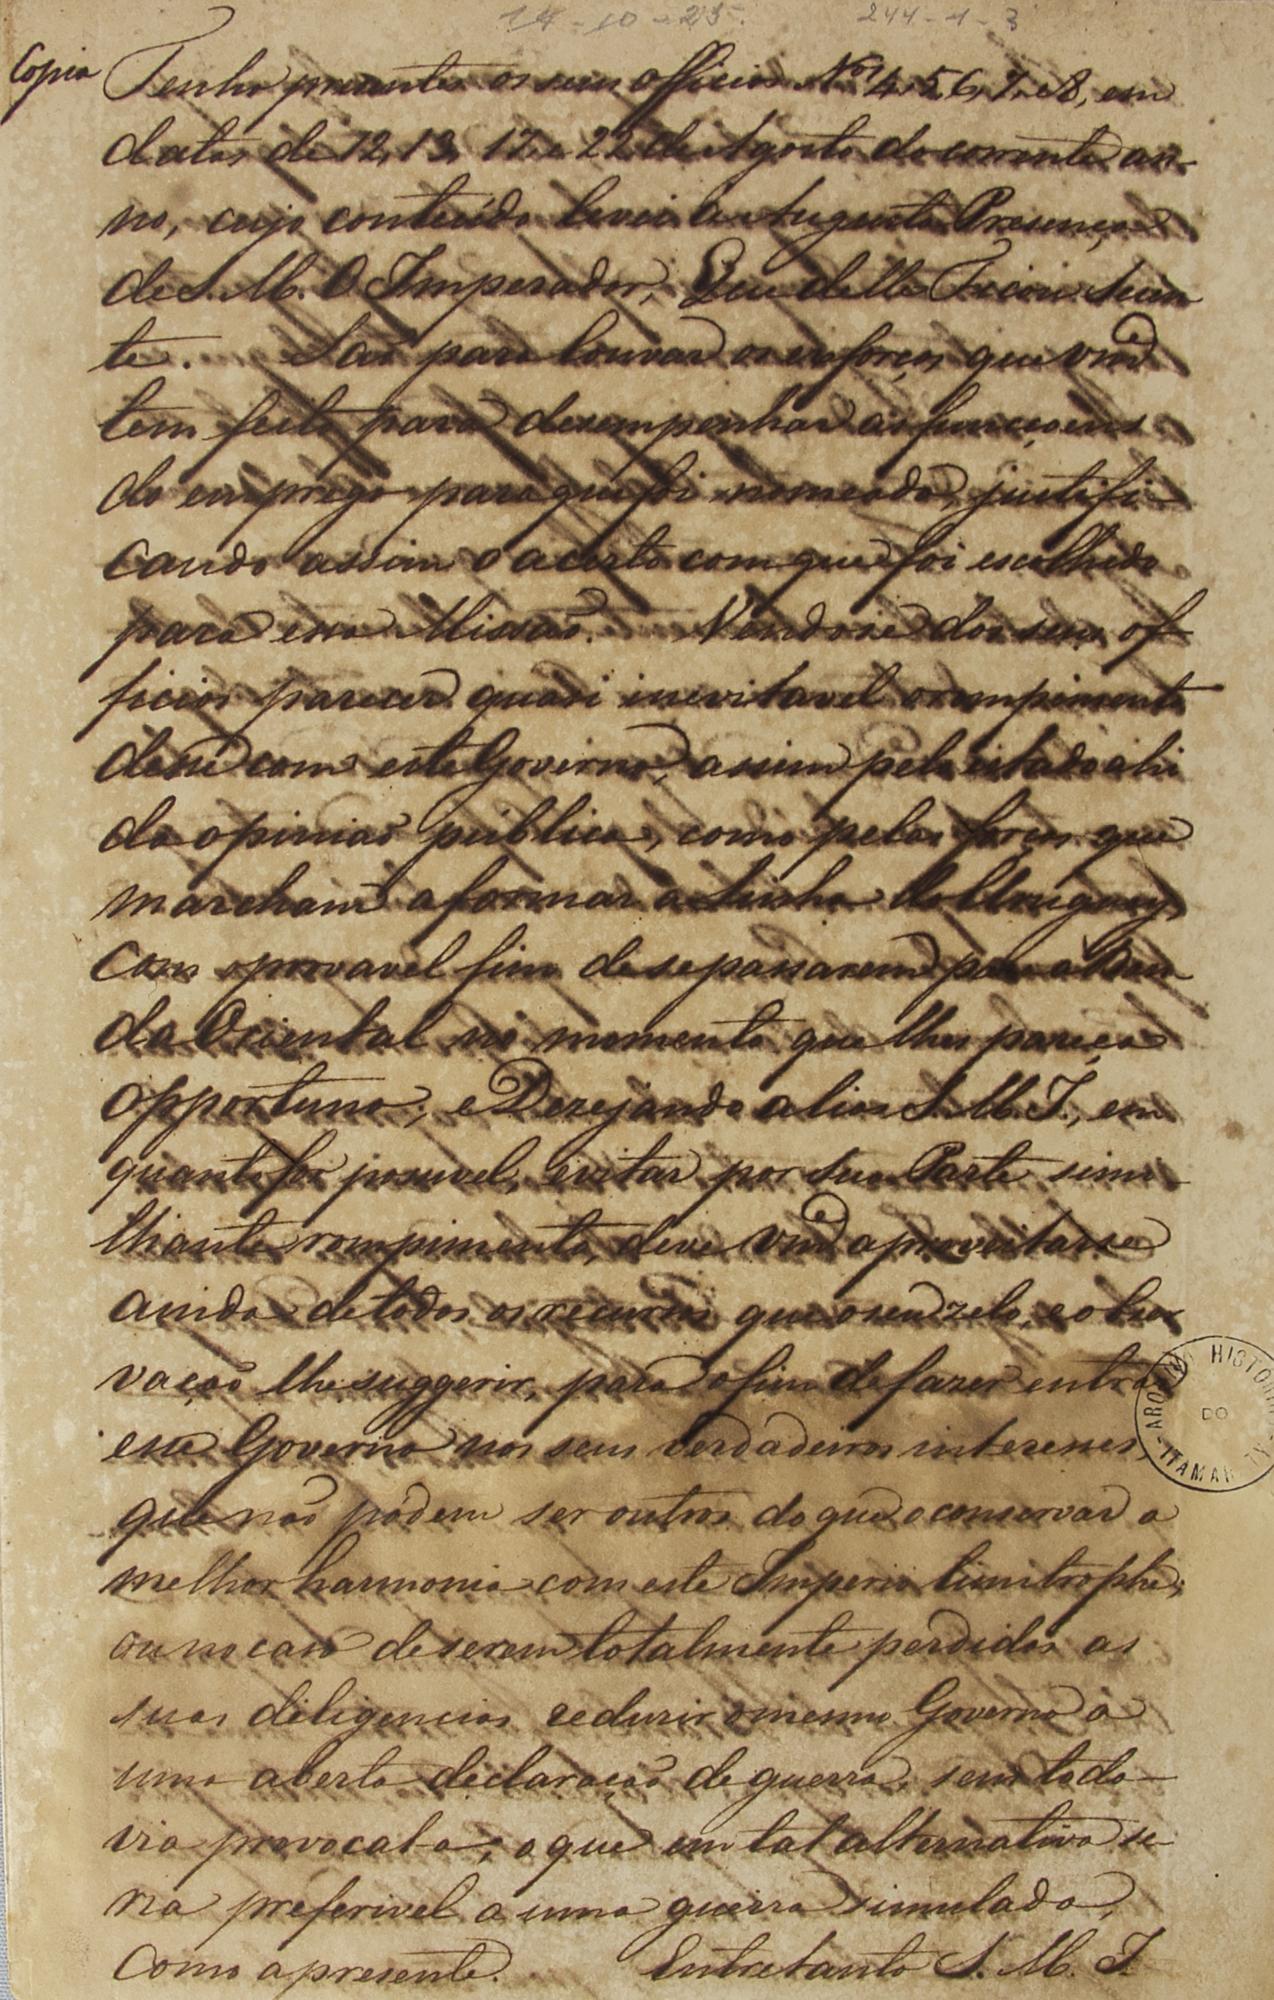 14-10-25. 244-1-3
Copia Tenho presentes os seus officios Nos 4, 5, 6, 7, e 8, em
datas de 12, 13, 17, e 22 de Agosto do corrente an-
no, cujo conteúdo levei á Augusta Presença
de S. M. O Imperador, Que delle Ficou Scien
te. São para louvar os esforços que Vmce
tem feito para desempenhar as funcçoens
do emprego para que foi nomeado, justifi-
cando assim o acerto com que foi escolhido
para essa Missão. Vendo-se dos seus of-
ficios parecer quasi inevitavel o rompimento
desse com este Governo, assim pelo estado ahi
da opinião pública, como pelas forças que
marcham a formar a Linha do Uruguay,
com o provavel fim de se passarem para a Ban
da Oriental no momento que lhes pareça
opportuno; e Dezejando alias S. M. I., em
quanto for possivel, evitar por Sua Parte simi-
lhante rompimento, deve Vmce aproveitar-se
ainda de todos os recursos que o seu zelo, e obser
vação lhe suggerir, para o fim de fazer entrar
esse Governo nos seus verdadeiros interesses,
que não pódem ser outros do que o conservar a
melhor harmonia com este Imperio limitrophe;
ou no caso de serem totalmente perdidas as
suas diligencias reduzir o mesmo Governo a
uma aberta declaração de guerra, sem toda-
via provocala; o que em tal alternativa se-
ria preferivel a uma guerra simulada,
como a presente. Entretanto S. M. I.
ARQUIVO HISTORICO
DO
ITAMARATY